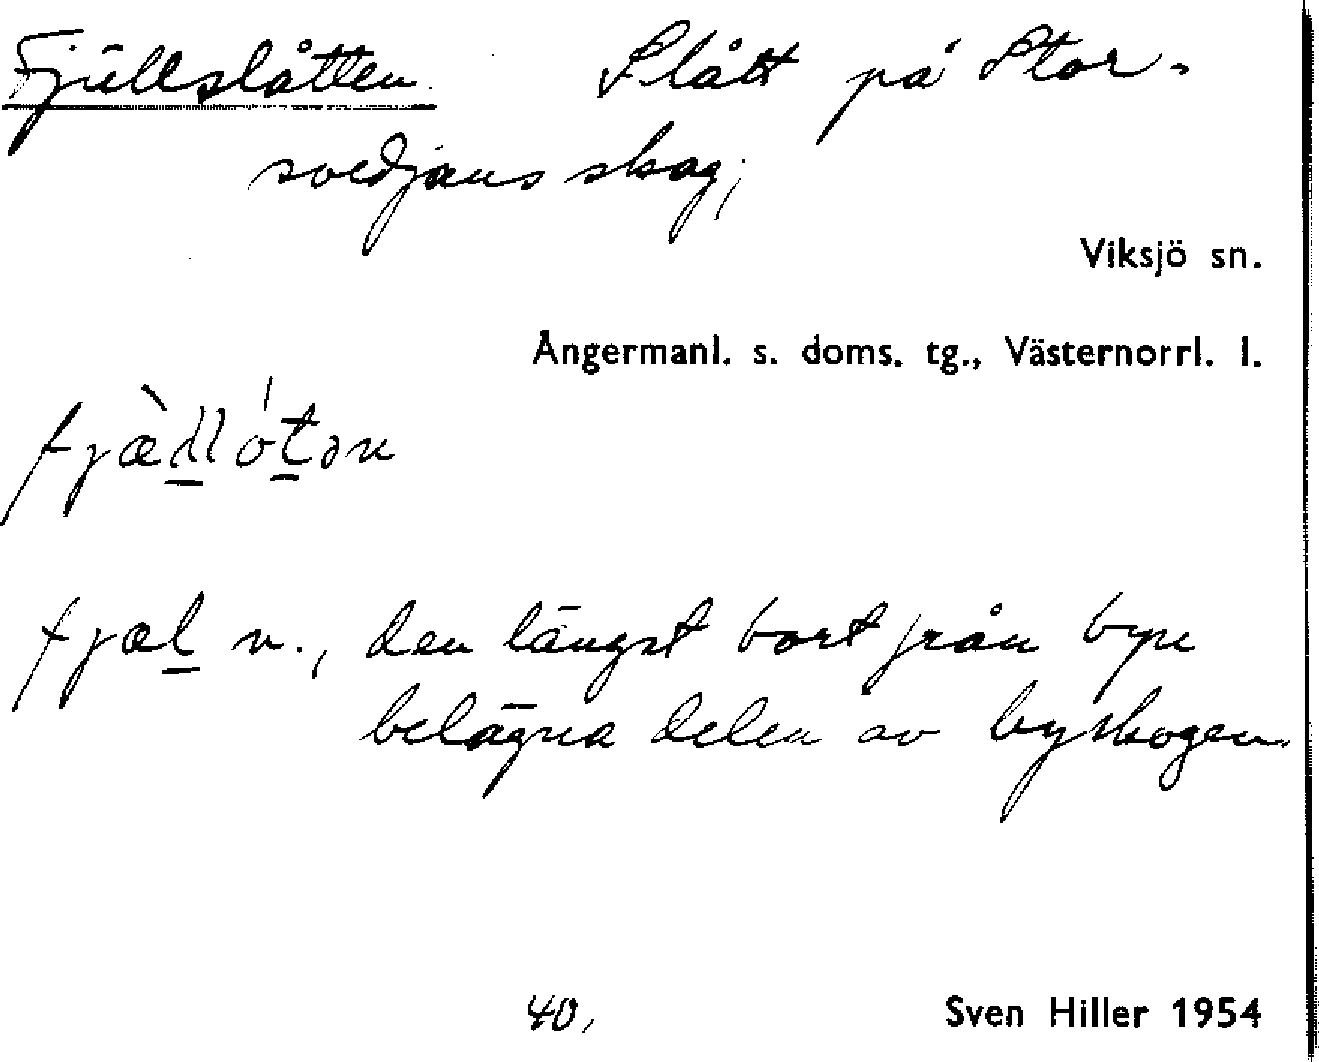 Fjällslåtten. Slått på Stor-
svedjans skog;
Viksjö sn.
Ångermanl. s. doms. tg., Västernorrl. l.
fjæ̀l̲lót̲ən
fjæl̲ n., den längst bort från byn
belägna delen av byskogen.
40, Sven Hiller 1954